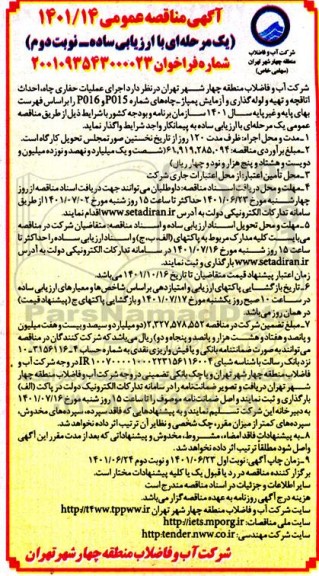 آگهی مناقصه عمومی ۱۴۰۱/۱۴
(یک مرحله‌ای با ارزیابی ساده ــ نوبت دوم)
شماره فراخوان ۲۰۰۱۰۹۳۵۴۳۰۰۰۰۲۳
شرکت آب و فاضلاب
منطقه چهار شهر تهران
(سهامی خاص)
شرکت آب و فاضلاب منطقه چهار شهر تهران در نظر دارد اجرای عملیات حفاری چاه، احداث
اتاقچه و تهیه و لوله‌گذاری و آزمایش پمپاژ ـ چاه‌های شماره P015 و P016 را براساس فهرست
بهای پایه و غیرپایه سال ۱۴۰۱ سازمان برنامه و بودجه کشور با شرایط ذیل از طریق مناقصه
عمومی یک مرحله‌ای با ارزیابی ساده به پیمانکار واجد شرایط واگذار نماید.
۱ـ مدت و محل اجراء: ظرف مدت ۱۲۰ روز از تاریخ نخستین صورتمجلس تحویل کارگاه است.
۲ـ مبلغ برآوردی مناقصه: ۶۱,۹۱۹,۲۸۵,۰۹۴ (شصت و یک میلیارد و نهصد و نوزده میلیون و
دویست و هشتاد و پنج هزار و نود و چهار ریال)
۳ـ محل تأمین اعتبار: از محل اعتبارات جاری شرکت
۴ـ مهلت و محل دریافت اسناد مناقصه: داوطلبان می‌توانند جهت دریافت اسناد مناقصه از روز
چهارشنبه مورخ ۱۴۰۱/۰۶/۲۳ حداکثر تا ساعت ۱۵ روز شنبه مورخ ۱۴۰۱/۰۷/۰۲ از طریق
سامانه تدارکات الکترونیکی دولت به آدرس www.setadiran.ir اقدام نمایند.
۵ـ مهلت و محل تحویل اسناد ارزیابی ساده و اسناد مناقصه: متقاضیان شرکت در مناقصه
می‌بایست کلیه مدارک مربوط به پاکتهای (الف، ب، ج) و اسناد ارزیابی ساده را حداکثر تا
ساعت ۱۵ روز شنبه مورخ ۱۴۰۱/۰۷/۱۶ در سامانه تدارکات الکترونیکی دولت به آدرس
www.setadiran.ir بارگذاری و ثبت نمایند.
زمان اعتبار پیشنهاد قیمت متقاضیان تا تاریخ ۱۴۰۱/۱۰/۱۶ می‌باشد.
۶ـ تاریخ بازگشایی پاکتهای ارزیابی و امتیازدهی براساس شاخص‌ها و معیارهای ارزیابی ساده
در ساعت ۱۰ صبح روز یکشنبه مورخ ۱۴۰۱/۰۷/۱۷ و بازگشایی پاکتهای ج (پیشنهاد قیمت)
در همان روز می‌باشد.
۷ـ مبلغ تضمین شرکت در مناقصه ۲,۲۲۷,۵۷۸,۵۵۲ (دو میلیارد و دویست و بیست و هفت میلیون
و پانصد و هفتاد و هشت هزار و پانصد و پنجاه و دو) ریال می‌باشد که شرکت کنندگان در مناقصه
می‌توانند به صورت ضمانتنامه بانکی و یا فیش واریز نقدی به شماره حساب
نزد بانک رسالت با شناسه شبای در وجه شرکت آب و
فاضلاب منطقه چهار شهر تهران و یا چک بانکی تضمینی در وجه شرکت آب و فاضلاب منطقه چهار
شهر تهران دریافت و تصویر ضمانتنامه را در سامانه تدارکات الکترونیک دولت در پاکت (الف)
بارگذاری و ثبت نمایند و اصل ضمانتنامه موصوف را تا ساعت ۱۵ روز شنبه مورخ ۱۴۰۱/۰۷/۱۶
به دبیرخانه این شرکت تسلیم نمایند و به پیشنهادهایی که فاقد سپرده، سپرده‌های مخدوش،
سپرده‌های کمتر از میزان مقرر، چک شخصی و نظایر آن ترتیب اثر داده نخواهد شد.
۸ـ به پیشنهادات فاقد امضاء، مشروط، مخدوش و پیشنهاداتی که بعد از مدت مقرر این آگهی
واصل شود مطلقاً ترتیب اثر داده نخواهد شد.
۹ـ زمان چاپ آگهی: نوبت اول ۱۴۰۱/۰۶/۲۳ و نوبت دوم ۱۴۰۱/۰۶/۲۴
برگزار کننده مناقصه در رد یا قبول یک یا کلیه پیشنهادات مختار است.
سایر اطلاعات و جزئیات در اسناد مناقصه مندرج است
هزینه درج آگهی روزنامه به عهده مناقصه گزار می‌باشد.
سایت شرکت آب و فاضلاب منطقه چهار شهر تهران http://t4ww.tpww.ir
سایت ملی مناقصات: http://iets.mporg.ir
سایت شرکت مهندسی: http:tender.nww.co.ir
شرکت آب و فاضلاب منطقه چهار شهر تهران